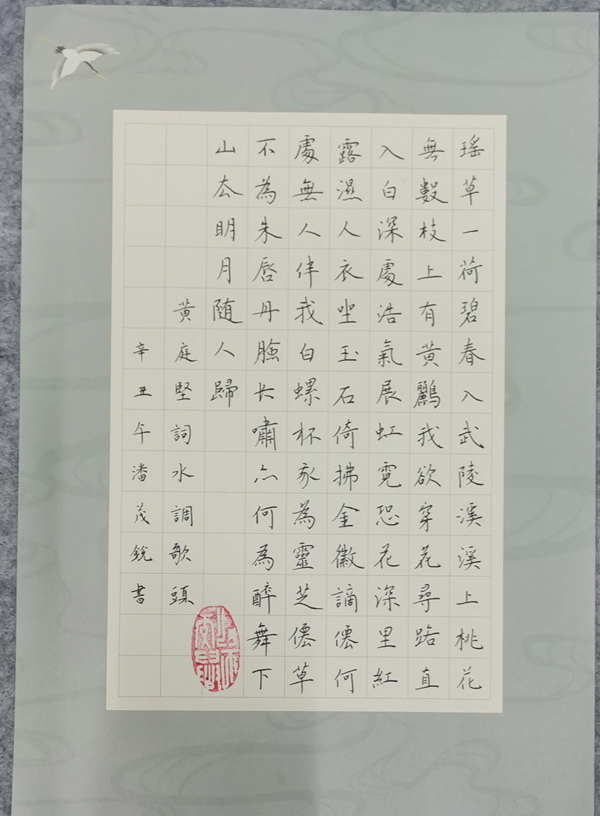 瑶草一荷碧春入武陵溪溪上桃花
無數枝上有黃鸝我欲穿花尋路直
入白深處浩氣展虹霓恐花深里紅
露濕人衣坐玉石倚拂金徽謫僊何
處無人伴我白螺杯我為靈芝僊草
不為朱唇丹臉長嘯亦何為醉舞下
山去明月随人歸
黃庭堅詞水調歌頭
辛丑午潘茂銳書